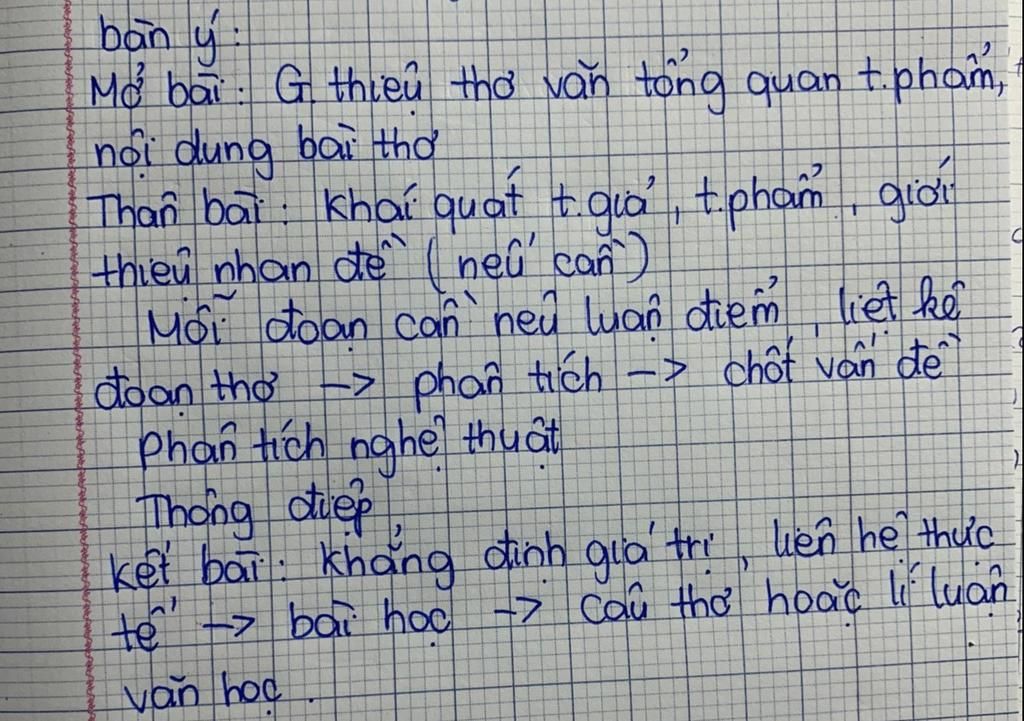 bàn ý:
Mở bài: G. thiệu thơ văn tổng quan t.phẩm,
nội dung bài thơ
Thân bài: Khái quát t.giả, t.phẩm, giới
thiệu nhan đề (nếu cần)
Mỗi đoạn cần nêu luận điểm, liệt kê
đoạn thơ -> phân tích -> chốt vấn đề
Phân tích nghệ thuật
Thông điệp
Kết bài: Khẳng định giá trị, liên hệ thực
tế -> bài học -> câu thơ hoặc lí luận
văn học.